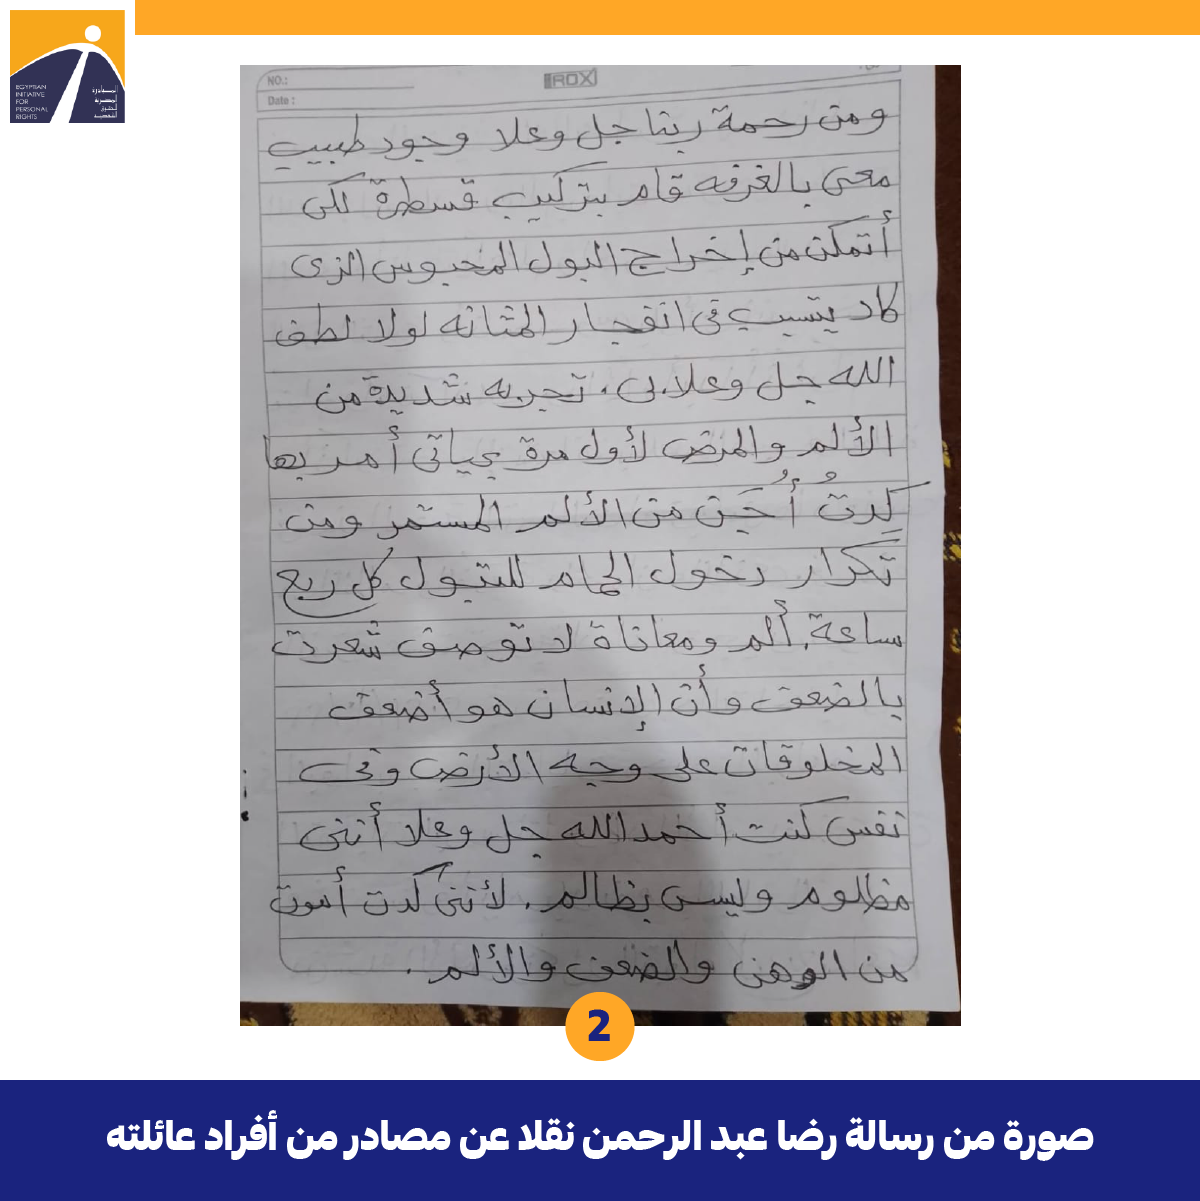 EGYPTIAN
INITIATIVE
FOR
PERSONAL
RIGHTS
المبادرة
المصرية
للحقوق
الشخصية
NO.:
ROX
Date :
ومن رحمة ربنا جل وعلا وجود طبيب
معى بالغرفه قام بتركيب قسطرة لكى
أتمكن من إخراج البول المحبوس الذى
كاد يتسبب فى انفجار المثانه لولا لطف
الله جل وعلا بى. تجربه شديدة من
الألم والمرض لأول مرة بحياتى أمر بها
كدتُ أُجَن من الألم المستمر ومن
تكرار دخول الحمام للتبول كل ربع
ساعة. ألم ومعاناة لا توصف شعرت
بالضعف وأن الإنسان هو أضعف
المخلوقات على وجه الأرض وفى
نفس كنت أحمد الله جل وعلا أننى
مظلوم وليس بظالم. لأننى كدت أموت
من الوهن والضعف والألم.
2
صورة من رسالة رضا عبد الرحمن نقلا عن مصادر من أفراد عائلته